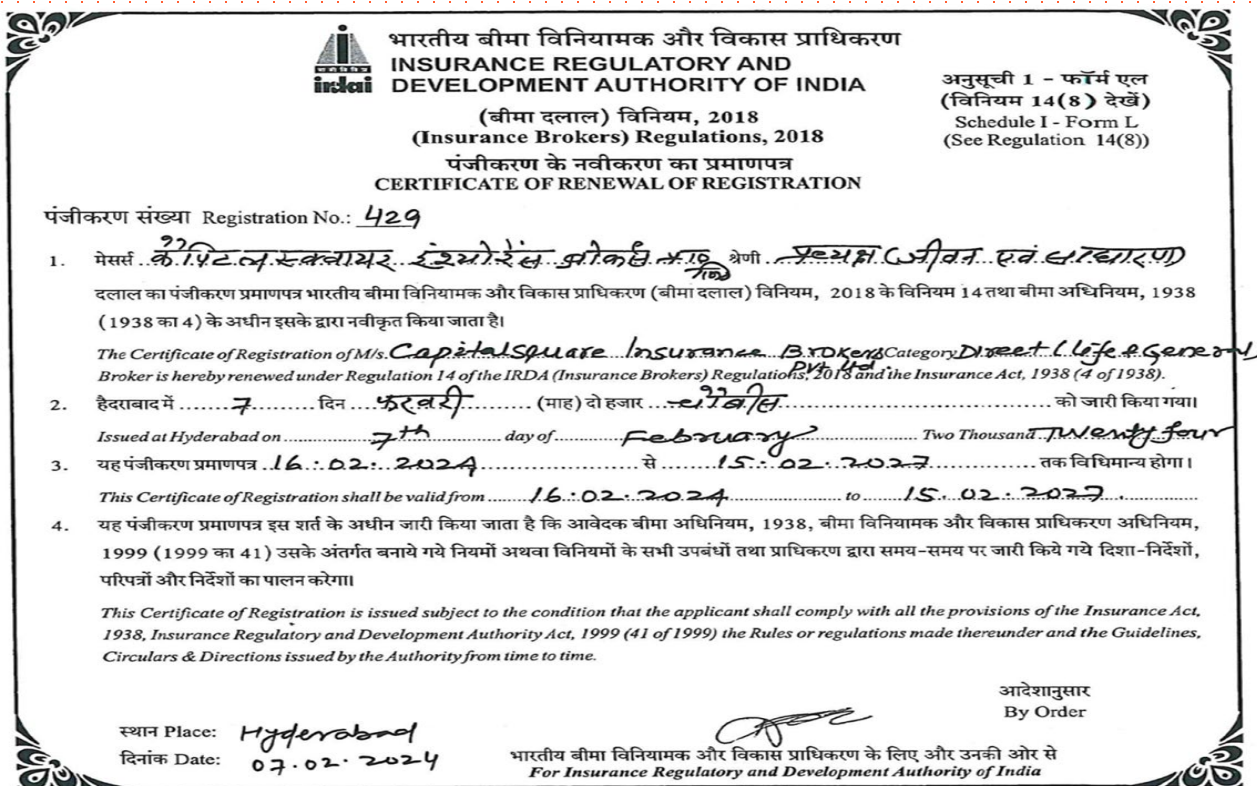 भारतीय बीमा विनियामक और विकास प्राधिकरण
INSURANCE REGULATORY AND
DEVELOPMENT AUTHORITY OF INDIA
irdai
अनुसूची 1 - फॉर्म एल
(विनियम 14(8) देखें)
Schedule I - Form L
(See Regulation 14(8))
(बीमा दलाल) विनियम, 2018
(Insurance Brokers) Regulations, 2018
पंजीकरण के नवीकरण का प्रमाणपत्र
CERTIFICATE OF RENEWAL OF REGISTRATION
पंजीकरण संख्या Registration No.: 429
1. मेसर्स कैपिटल स्क्वायर इंश्योरेंस ब्रोकर्स श्रेणी प्रत्यक्ष (जीवन एवं साधारण)
दलाल का पंजीकरण प्रमाणपत्र भारतीय बीमा विनियामक और विकास प्राधिकरण (बीमा दलाल) विनियम, 2018 के विनियम 14 तथा बीमा अधिनियम, 1938
(1938 का 4) के अधीन इसके द्वारा नवीकृत किया जाता है।
The Certificate of Registration of M/s. CapitalSquare Insurance Brokers Pvt Ltd. Category Direct (Life & General)
Broker is hereby renewed under Regulation 14 of the IRDA (Insurance Brokers) Regulations, 2018 and the Insurance Act, 1938 (4 of 1938).
2. हैदराबाद में 7 दिन फरवरी (माह) दो हजार चौबीस को जारी किया गया।
Issued at Hyderabad on 7th day of February Two Thousand Twenty four
3. यह पंजीकरण प्रमाणपत्र 16.02.2024 से 15.02.2027 तक विधिमान्य होगा।
This Certificate of Registration shall be valid from 16.02.2024 to 15.02.2027.
4. यह पंजीकरण प्रमाणपत्र इस शर्त के अधीन जारी किया जाता है कि आवेदक बीमा अधिनियम, 1938, बीमा विनियामक और विकास प्राधिकरण अधिनियम,
1999 (1999 का 41) उसके अंतर्गत बनाये गये नियमों अथवा विनियमों के सभी उपबंधों तथा प्राधिकरण द्वारा समय-समय पर जारी किये गये दिशा-निर्देशों,
परिपत्रों और निर्देशों का पालन करेगा।
This Certificate of Registration is issued subject to the condition that the applicant shall comply with all the provisions of the Insurance Act,
1938, Insurance Regulatory and Development Authority Act, 1999 (41 of 1999) the Rules or regulations made thereunder and the Guidelines,
Circulars & Directions issued by the Authority from time to time.
आदेशानुसार
By Order
स्थान Place: Hyderabad
दिनांक Date: 07.02.2024
भारतीय बीमा विनियामक और विकास प्राधिकरण के लिए और उनकी ओर से
For Insurance Regulatory and Development Authority of India